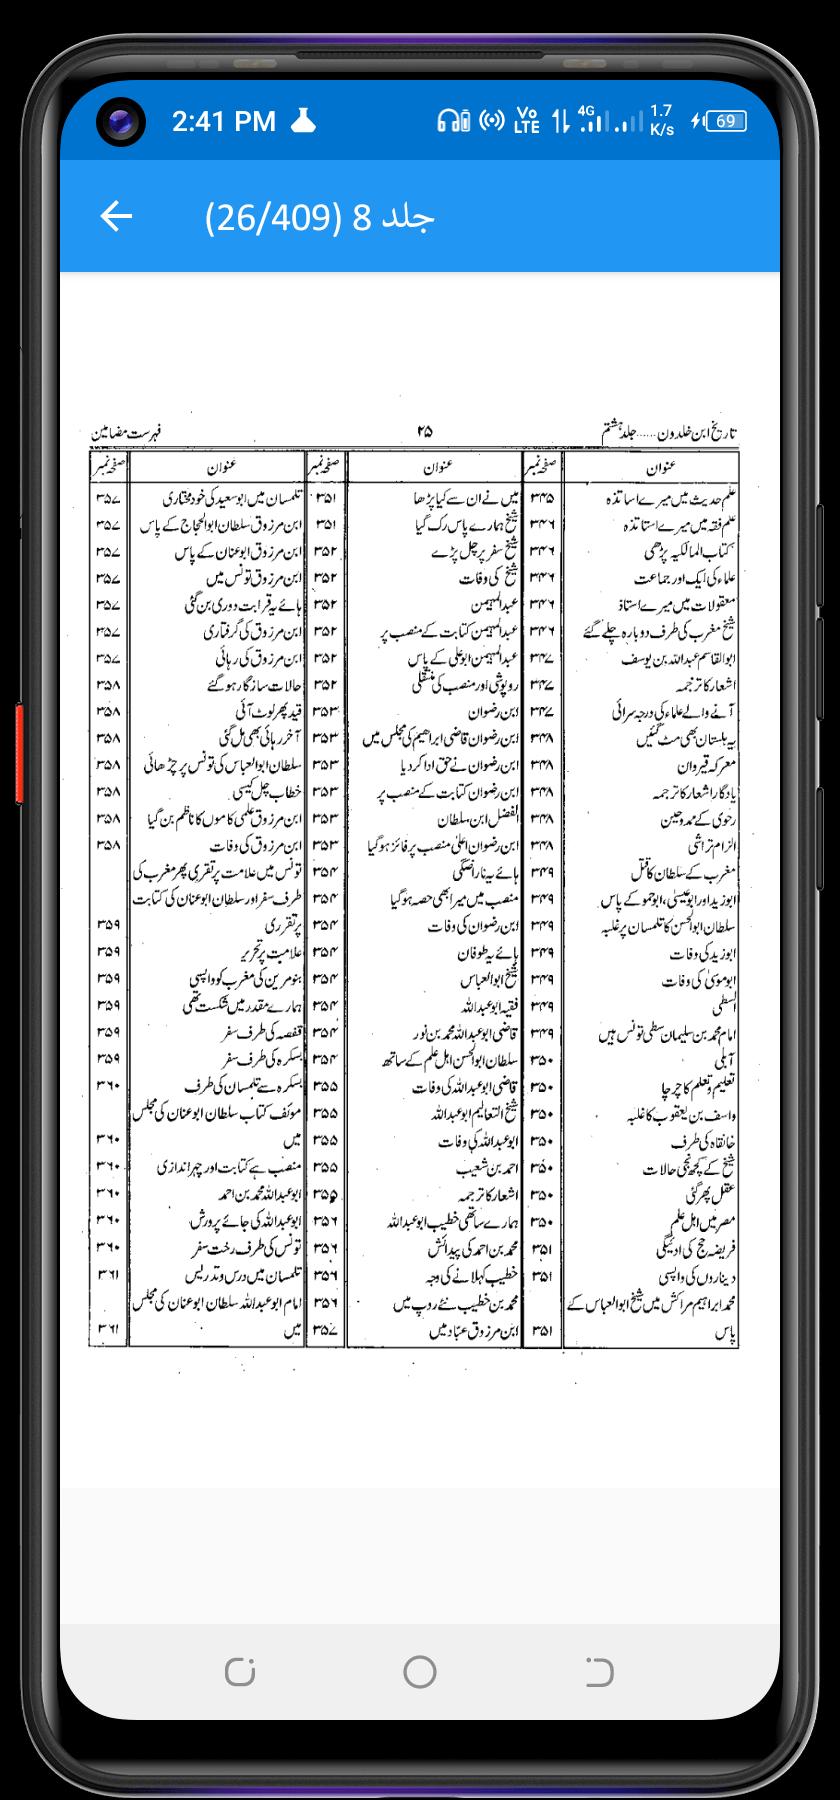 2:41 PM
Vo LTE 4G 1.7 K/s 69
جلد 8 (26/409)
تاریخ ابن خلدون ...... جلد ہشتم ۲۵ فہرست مضامین
عنوان صفحہ نمبر
علم حدیث میں میرے اساتذہ ۳۴۵
علم فقہ میں میرے استاتذہ ۳۴۶
کتاب المالکیہ پڑھی ۳۴۶
علماء کی ایک اور جماعت ۳۴۶
معقولات میں میرے استاذ ۳۴۶
شیخ مغرب کی طرف دوبارہ چلے گئے ۳۴۶
ابوالقاسم عبداللہ بن یوسف ۳۴۷
اشعار کا ترجمہ ۳۴۷
آنے والے علماء کی درجہ سرائی ۳۴۷
یہ ہلستان بھی مٹ گئیں ۳۴۸
معرکہ قیروان ۳۴۸
یادگار اشعار کا ترجمہ ۳۴۸
رحوی کے ممدوحین ۳۴۸
الزام تراشی ۳۴۸
مغرب کے سلطان کا قتل ۳۴۹
ابوزید اور ابوعیسیٰ، ابوحمو کے پاس ۳۴۹
سلطان ابوالحسن کا تلمسان پر غلبہ ۳۴۹
ابوزید کی وفات ۳۴۹
ابو موسیٰ کی وفات ۳۴۹
السطی ۳۴۹
امام محمد بن سلیمان سطی تونس ہیں ۳۴۹
آبلی ۳۵۰
تعلیم و تعلم کا چرچا ۳۵۰
واسف بن یعقوب کا غلبہ ۳۵۰
خانقاہ کی طرف ۳۵۰
شیخ کے کچھ نجی حالات ۳۵۰
عقل پھر گئی ۳۵۰
مصر میں اہل علم ۳۵۰
فریضہ حج کی ادئیگی ۳۵۱
دیناروں کی واپسی ۳۵۱
محمد ابراہیم مراکش میں شیخ ابوالعباس کے
پاس ۳۵۱
عنوان صفحہ نمبر
میں نے ان سے کیا پڑھا ۳۵۱
شیخ ہمارے پاس رک گیا ۳۵۱
شیخ سفر پر چل پڑے ۳۵۲
شیخ کی وفات ۳۵۲
عبدالمہیمن ۳۵۲
عبدالمہیمن کتابت کے منصب پر ۳۵۲
عبدالمہیمن ابوعلی کے پاس ۳۵۲
روپوشی اور منصب کی منتقلی ۳۵۲
ابن رضوان ۳۵۳
ابن رضوان قاضی ابراھیم کی مجلس میں ۳۵۳
ابن رضوان نے حق ادا کر دیا ۳۵۳
ابن رضوان کتابت کے منصب پر ۳۵۳
الفضل ابن سلطان ۳۵۳
ابن رضوان اعلیٰ منصب پر فائز ہو گیا ۳۵۳
ہائے یہ ناراضگی ۳۵۴
منصب میں میرا بھی حصہ ہو گیا ۳۵۴
ابن رضوان کی وفات ۳۵۴
ہائے یہ طوفان ۳۵۴
شیخ ابوالعباس ۳۵۴
فقیہ ابوعبداللہ ۳۵۴
قاضی ابوعبداللہ محمد بن نور ۳۵۴
سلطان ابوالحسن اہل علم کے ساتھ ۳۵۴
قاضی ابوعبداللہ کی وفات ۳۵۵
شیخ التعالیم ابوعبداللہ ۳۵۵
ابوعبداللہ کی وفات ۳۵۵
احمد بن شعیب ۳۵۵
اشعار کا ترجمہ ۳۵۵
ہمارے ساتھی خطیب ابوعبداللہ ۳۵۶
محمد بن احمد کی پیدائش ۳۵۶
خطیب کہلانے کی وجہ ۳۵۶
محمد بن خطیب نئے روپ میں ۳۵۶
ابن مرزوق عباد میں ۳۵۷
عنوان صفحہ نمبر
تلمسان میں ابوسعید کی خودمختاری ۳۵۷
ابن مرزوق سلطان ابوالحجاج کے پاس ۳۵۷
ابن مرزوق ابوعنان کے پاس ۳۵۷
ابن مرزوق تونس میں ۳۵۷
ہائے یہ قرابت دوری بن گئی ۳۵۷
ابن مرزوق کی گرفتاری ۳۵۷
ابن مرزوق کی رہائی ۳۵۷
حالات سازگار ہو گئے ۳۵۸
قید پھر لوٹ آئی ۳۵۸
آخر رہائی بھی مل گئی ۳۵۸
سلطان ابوالعباس کی تونس پر چڑھائی ۳۵۸
خطاب چل کیسی ۳۵۸
ابن مرزوق علمی کاموں کا ناظم بن گیا ۳۵۸
ابن مرزوق کی وفات ۳۵۸
تونس میں علامت پر تقرری پھر مغرب کی
طرف سفر اور سلطان ابوعنان کی کتابت
پر تقرری ۳۵۹
علامت پر تحریر ۳۵۹
بنومرین کی مغرب کو واپسی ۳۵۹
ہمارے مقدر میں شکست تھی ۳۵۹
قفصہ کی طرف سفر ۳۵۹
بسکرہ کی طرف سفر ۳۵۹
بسکرہ سے تلمسان کی طرف ۳۶۰
مولف کتاب سلطان ابوعنان کی مجلس
میں ۳۶۰
منصب ہے کتابت اور چہراندازی ۳۶۰
ابوعبداللہ محمد بن احمد ۳۶۰
ابوعبداللہ کی جائے پرورش ۳۶۰
تونس کی طرف رخت سفر ۳۶۰
تلمسان میں درس و تدریس ۳۶۱
امام ابوعبداللہ سلطان ابوعنان کی مجلس
میں ۳۶۱